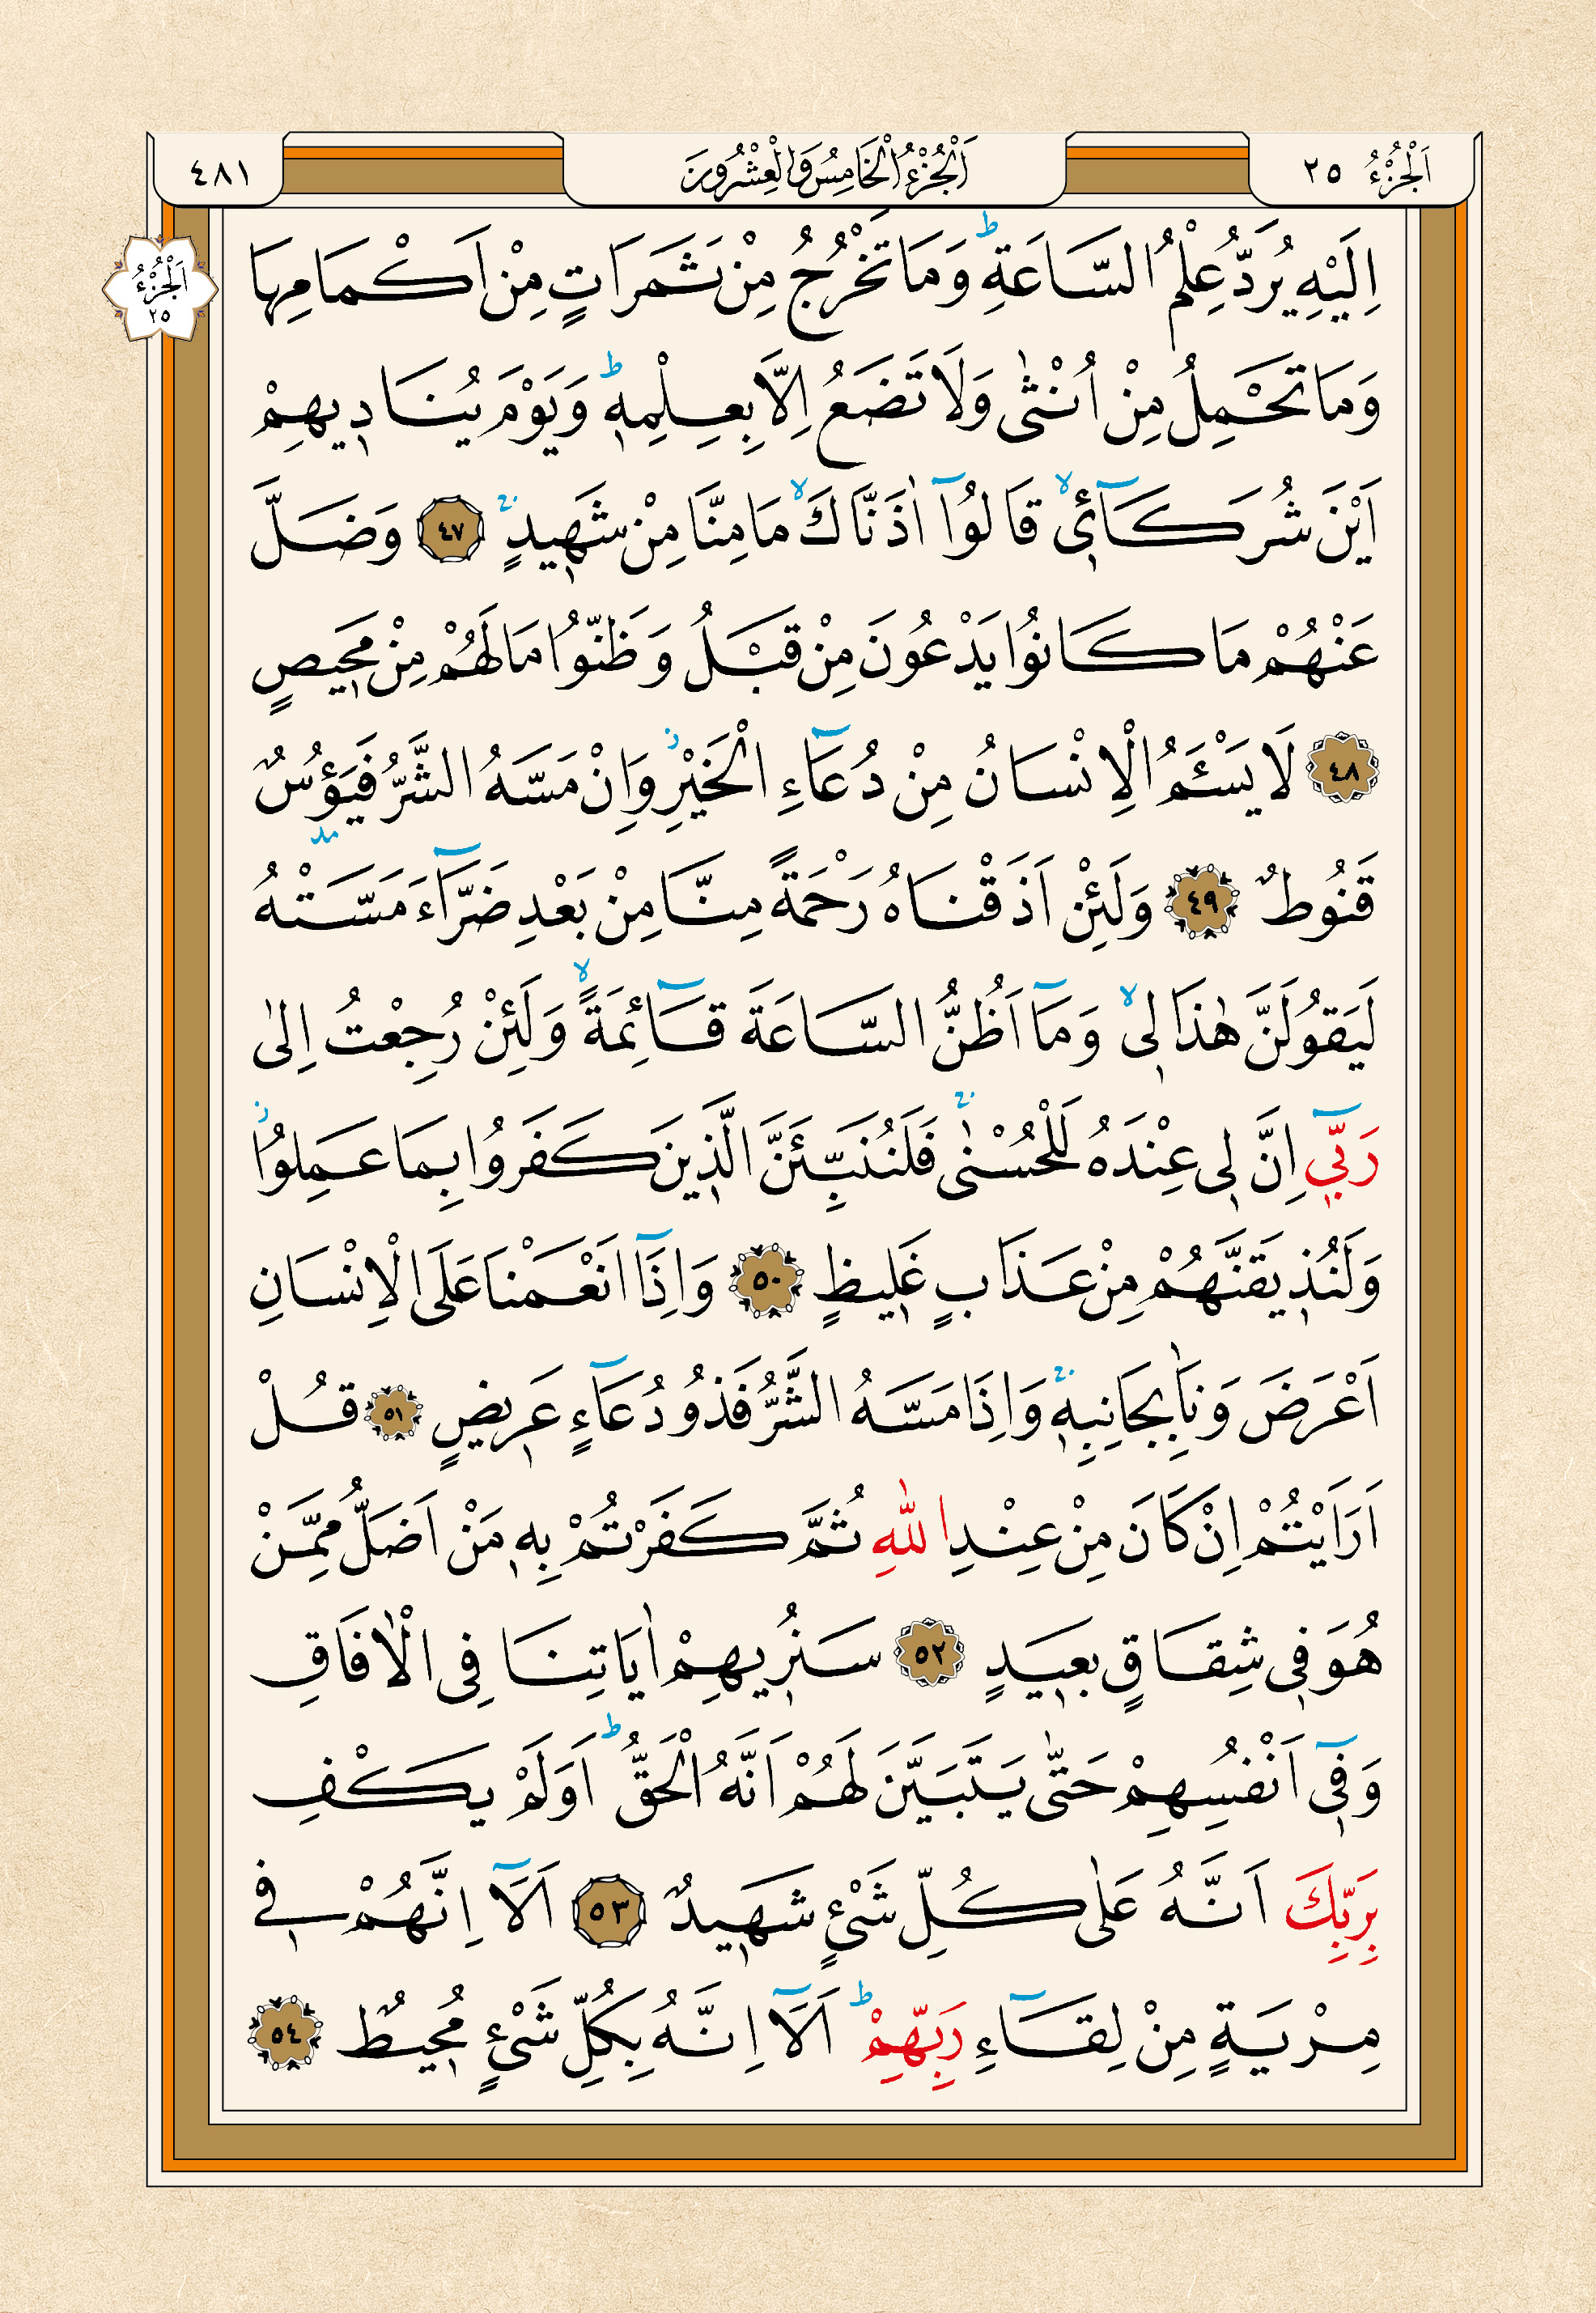 اَلْجُزْءُ ٢٥
اَلْجُزْءُ الْخَامِسُ وَالْعِشْرُونَ
٤٨١
اَلْجُزْءُ
٢٥
اِلَيْهِ يُرَدُّ عِلْمُ السَّاعَةِۜ وَمَا تَخْرُجُ مِنْ ثَمَرَاتٍ مِنْ اَكْمَامِهَا
وَمَا تَحْمِلُ مِنْ اُنْثٰى وَلَا تَضَعُ اِلَّا بِعِلْمِه۪ۜ وَيَوْمَ يُنَاد۪يهِمْ
اَيْنَ شُرَكَٓاء۪يۙ قَالُٓوا اٰذَنَّاكَۙ مَا مِنَّا مِنْ شَه۪يدٍۚ ﴿٤٧﴾ وَضَلَّ
عَنْهُمْ مَا كَانُوا يَدْعُونَ مِنْ قَبْلُ وَظَنُّوا مَا لَهُمْ مِنْ مَح۪يصٍ
﴿٤٨﴾ لَا يَسْـَٔمُ الْاِنْسَانُ مِنْ دُعَٓاءِ الْخَيْرِۘ وَاِنْ مَسَّهُ الشَّرُّ فَيَؤُ۫سٌ
قَنُوطٌ ﴿٤٩﴾ وَلَئِنْ اَذَقْنَاهُ رَحْمَةً مِنَّا مِنْ بَعْدِ ضَرَّٓاءَ مَسَّتْهُ
لَيَقُولَنَّ هٰذَا ل۪يۙ وَمَٓا اَظُنُّ السَّاعَةَ قَٓائِمَةًۙ وَلَئِنْ رُجِعْتُ اِلٰى
رَبّ۪ٓي اِنَّ ل۪ي عِنْدَهُ لَلْحُسْنٰىۚ فَلَنُنَبِّئَنَّ الَّذ۪ينَ كَفَرُوا بِمَا عَمِلُواۘ
وَلَنُذ۪يقَنَّهُمْ مِنْ عَذَابٍ غَل۪يظٍ ﴿٥٠﴾ وَاِذَٓا اَنْعَمْنَا عَلَى الْاِنْسَانِ
اَعْرَضَ وَنَاٰ بِجَانِبِه۪ۚ وَاِذَا مَسَّهُ الشَّرُّ فَذُو دُعَٓاءٍ عَر۪يضٍ ﴿٥١﴾ قُلْ
اَرَاَيْتُمْ اِنْ كَانَ مِنْ عِنْدِ اللّٰهِ ثُمَّ كَفَرْتُمْ بِه۪ مَنْ اَضَلُّ مِمَّنْ
هُوَ ف۪ي شِقَاقٍ بَع۪يدٍ ﴿٥٢﴾ سَنُر۪يهِمْ اٰيَاتِنَا فِي الْاٰفَاقِ
وَف۪ٓي اَنْفُسِهِمْ حَتّٰى يَتَبَيَّنَ لَهُمْ اَنَّهُ الْحَقُّۜ اَوَلَمْ يَكْفِ
بِرَبِّكَ اَنَّهُ عَلٰى كُلِّ شَيْءٍ شَه۪يدٌ ﴿٥٣﴾ اَلَٓا اِنَّهُمْ ف۪ي
مِرْيَةٍ مِنْ لِقَٓاءِ رَبِّهِمْۜ اَلَٓا اِنَّهُ بِكُلِّ شَيْءٍ مُح۪يطٌ ﴿٥٤﴾